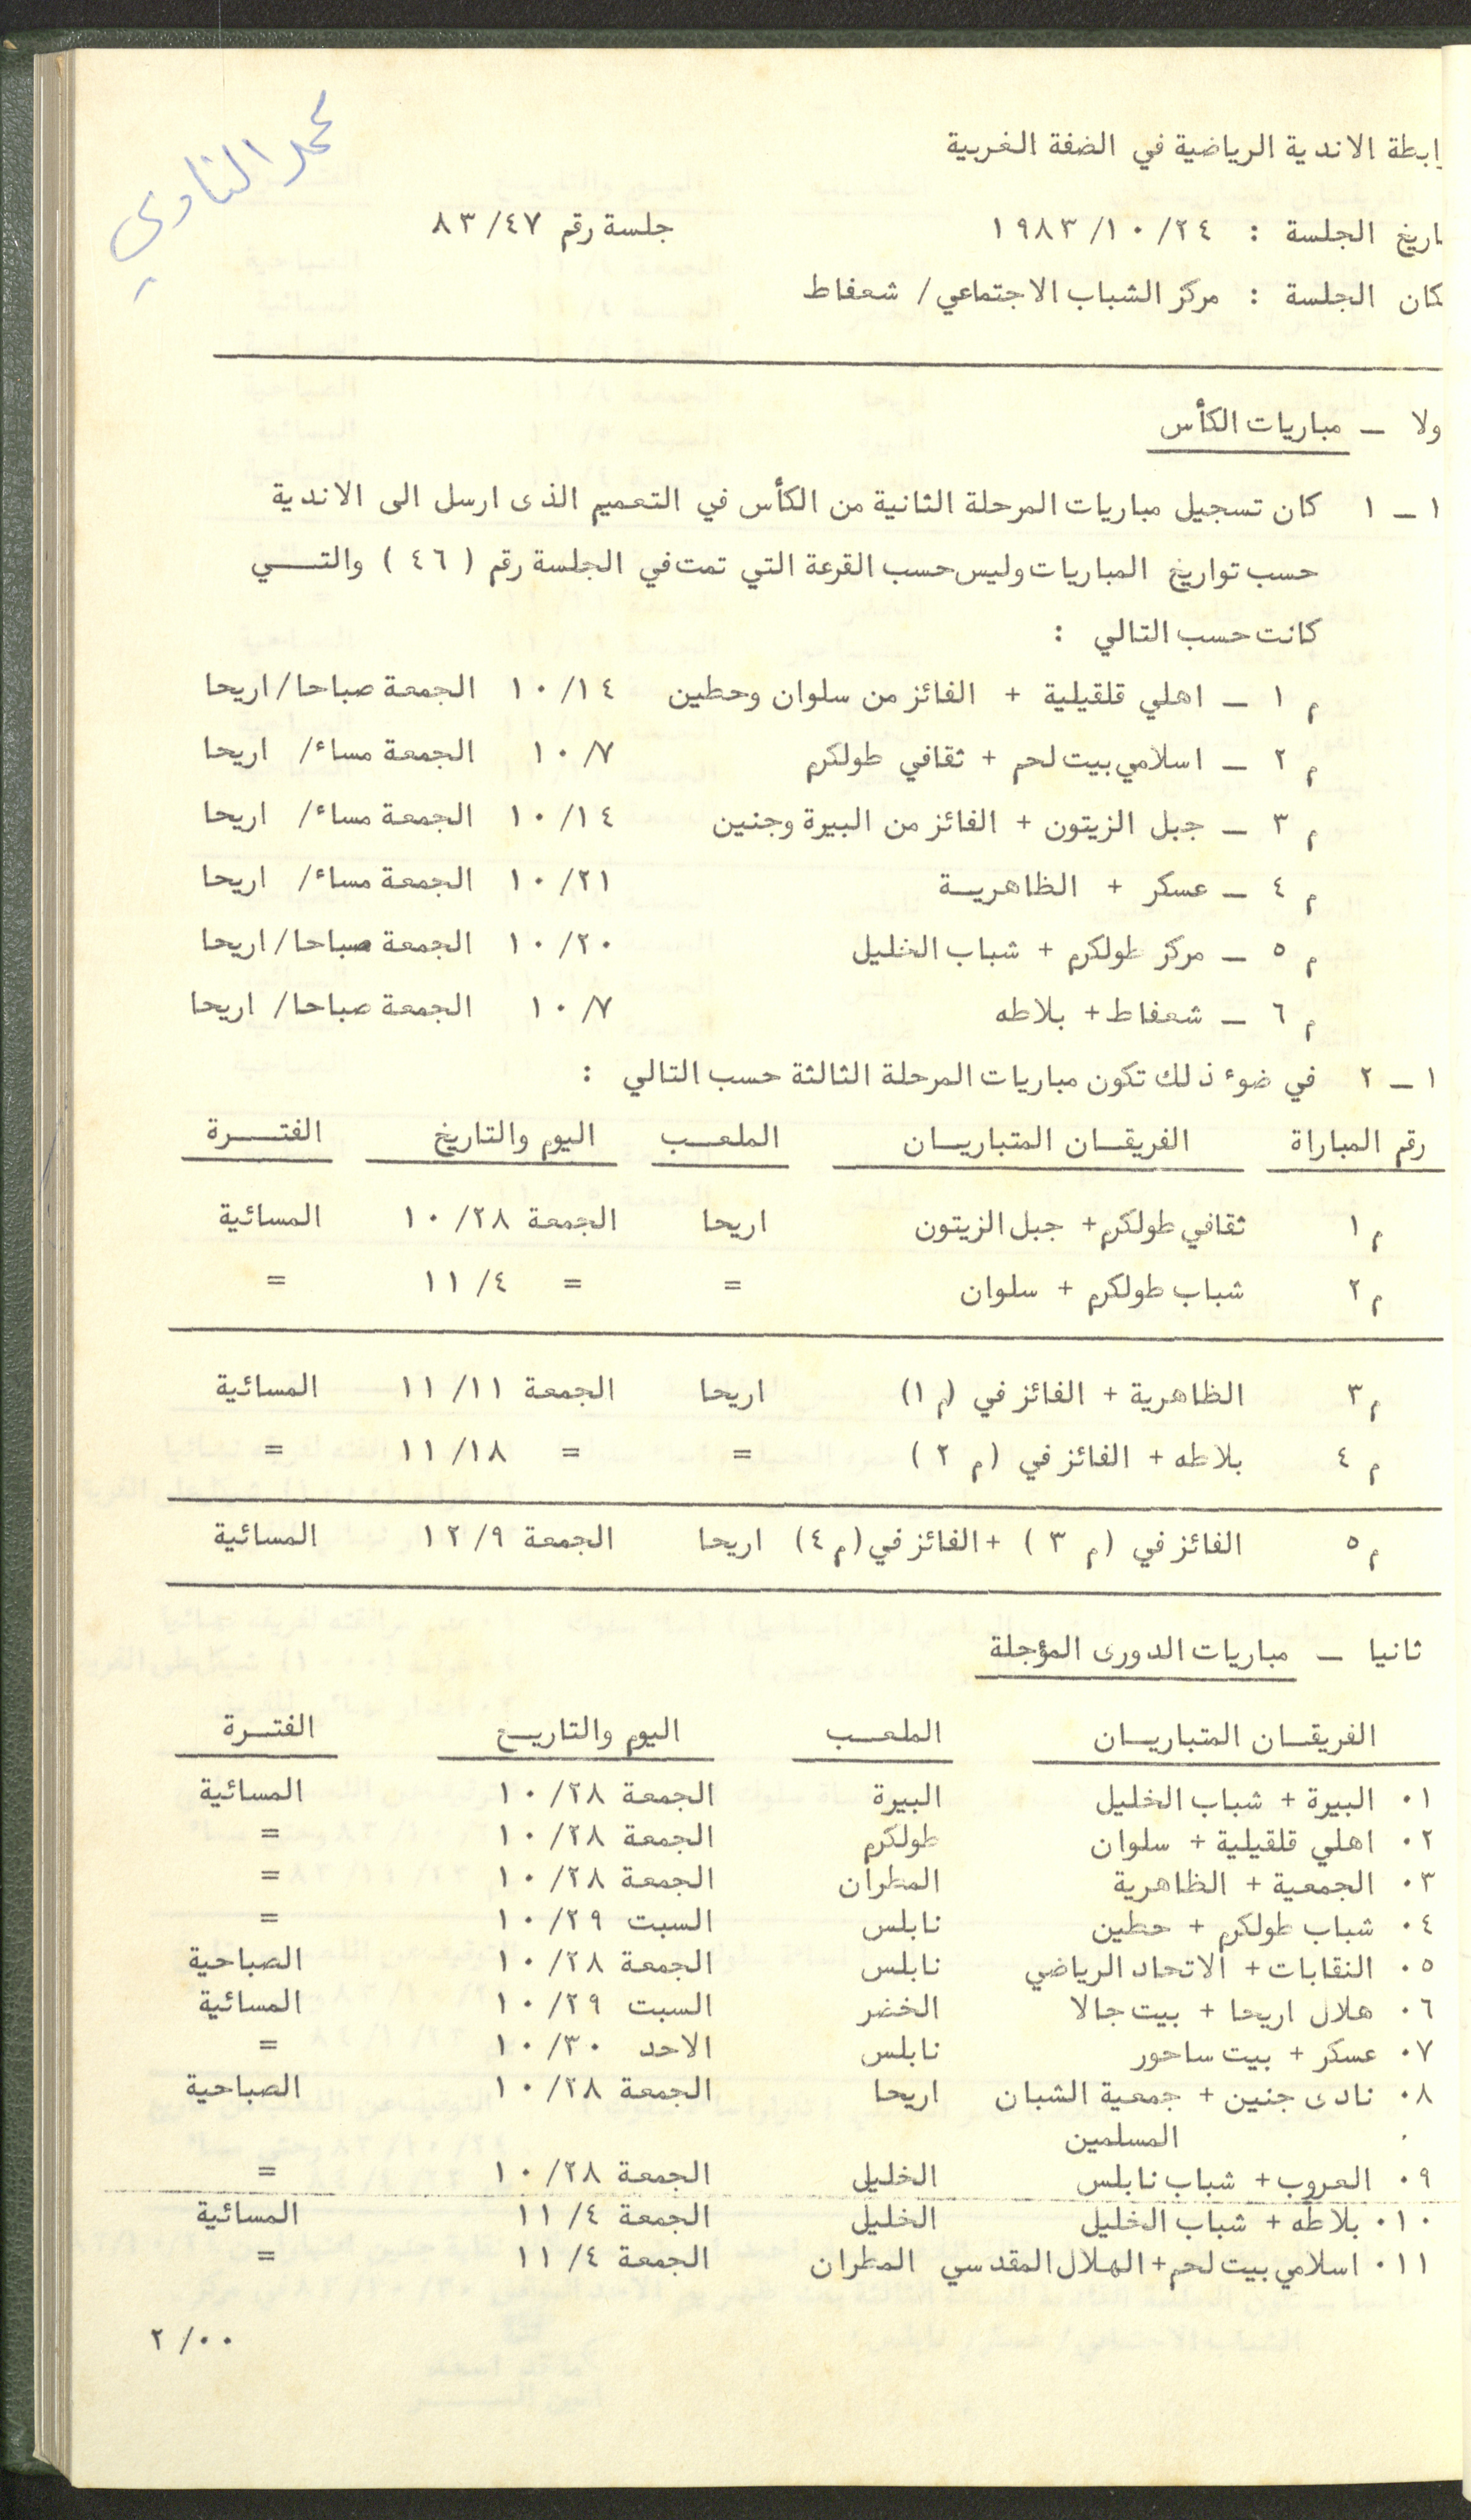 محمد النادي
رابطة الاندية الرياضية في الضفة الغربية
تاريخ الجلسة : ١٩٨٣/١٠/٢٤ جلسة رقم ٨٣/٤٧
مكان الجلسة : مركز الشباب الاجتماعي/ شعفاط
اولا – مباريات الكأس
١ – ١ كان تسجيل مباريات المرحلة الثانية من الكأس في التعميم الذى ارسل الى الاندية
حسب تواريخ المباريات وليس حسب القرعة التي تمت في الجلسة رقم ( ٤٦ ) والتــي
كانت حسب التالي :
م ١ – اهلي قلقيلية + الفائز من سلوان وحطين ١٠/١٤ الجمعة صباحا/ اريحا
م ٢ – اسلامي بيت لحم + ثقافي طولكرم ١٠/٧ الجمعة مساء/ اريحا
م ٣ – جبل الزيتون + الفائز من البيرة وجنين ١٠/١٤ الجمعة مساء/ اريحا
م ٤ – عسكر + الظاهريــة ١٠/٢١ الجمعة مساء/ اريحا
م ٥ – مركز طولكرم + شباب الخليل ١٠/٢٠ الجمعة صباحا/ اريحا
م ٦ – شعفاط + بلاطه ١٠/٧ الجمعة صباحا/ اريحا
١ – ٢ في ضوء ذلك تكون مباريات المرحلة الثالثة حسب التالي :
رقم المباراة الفريقــان المتباريــان الملعــب اليوم والتاريخ الفتــرة
م ١ ثقافي طولكرم + جبل الزيتون اريحا الجمعة ١٠/٢٨ المسائية
م ٢ شباب طولكرم + سلوان = = ١١/٤ =
م ٣ الظاهرية + الفائز في (م ١) اريحا الجمعة ١١/١١ المسائية
م ٤ بلاطه + الفائز في (م ٢ ) = = ١١/١٨ =
م ٥ الفائز في (م ٣ ) + الفائز في (م ٤) اريحا الجمعة ١٢/٩ المسائية
ثانيا – مباريات الدورى المؤجلة
الفريقــان المتباريــان الملعــب اليوم والتاريــخ الفتــرة
١٠ البيرة + شباب الخليل البيرة الجمعة ١٠/٢٨ المسائية
٢٠ اهلي قلقيلية + سلوان طولكرم الجمعة ١٠/٢٨ =
٣٠ الجمعية + الظاهرية المطران الجمعة ١٠/٢٨ =
٤٠ شباب طولكرم + حطين نابلس السبت ١٠/٢٩ =
٥٠ النقابات + الاتحاد الرياضي نابلس الجمعة ١٠/٢٨ الصباحية
٦٠ هلال اريحا + بيت جالا الخضر السبت ١٠/٢٩ المسائية
٧٠ عسكر + بيت ساحور نابلس الاحد ١٠/٣٠ =
٨٠ نادى جنين + جمعية الشبان اريحا الجمعة ١٠/٢٨ الصباحية
المسلمين
٩٠ العروب + شباب نابلس الخليل الجمعة ١٠/٢٨ =
١٠٠ بلاطه + شباب الخليل الخليل الجمعة ١١/٤ المسائية
١١٠ اسلامي بيت لحم + الهلال المقدسي المطران الجمعة ١١/٤ =
٢/٠٠